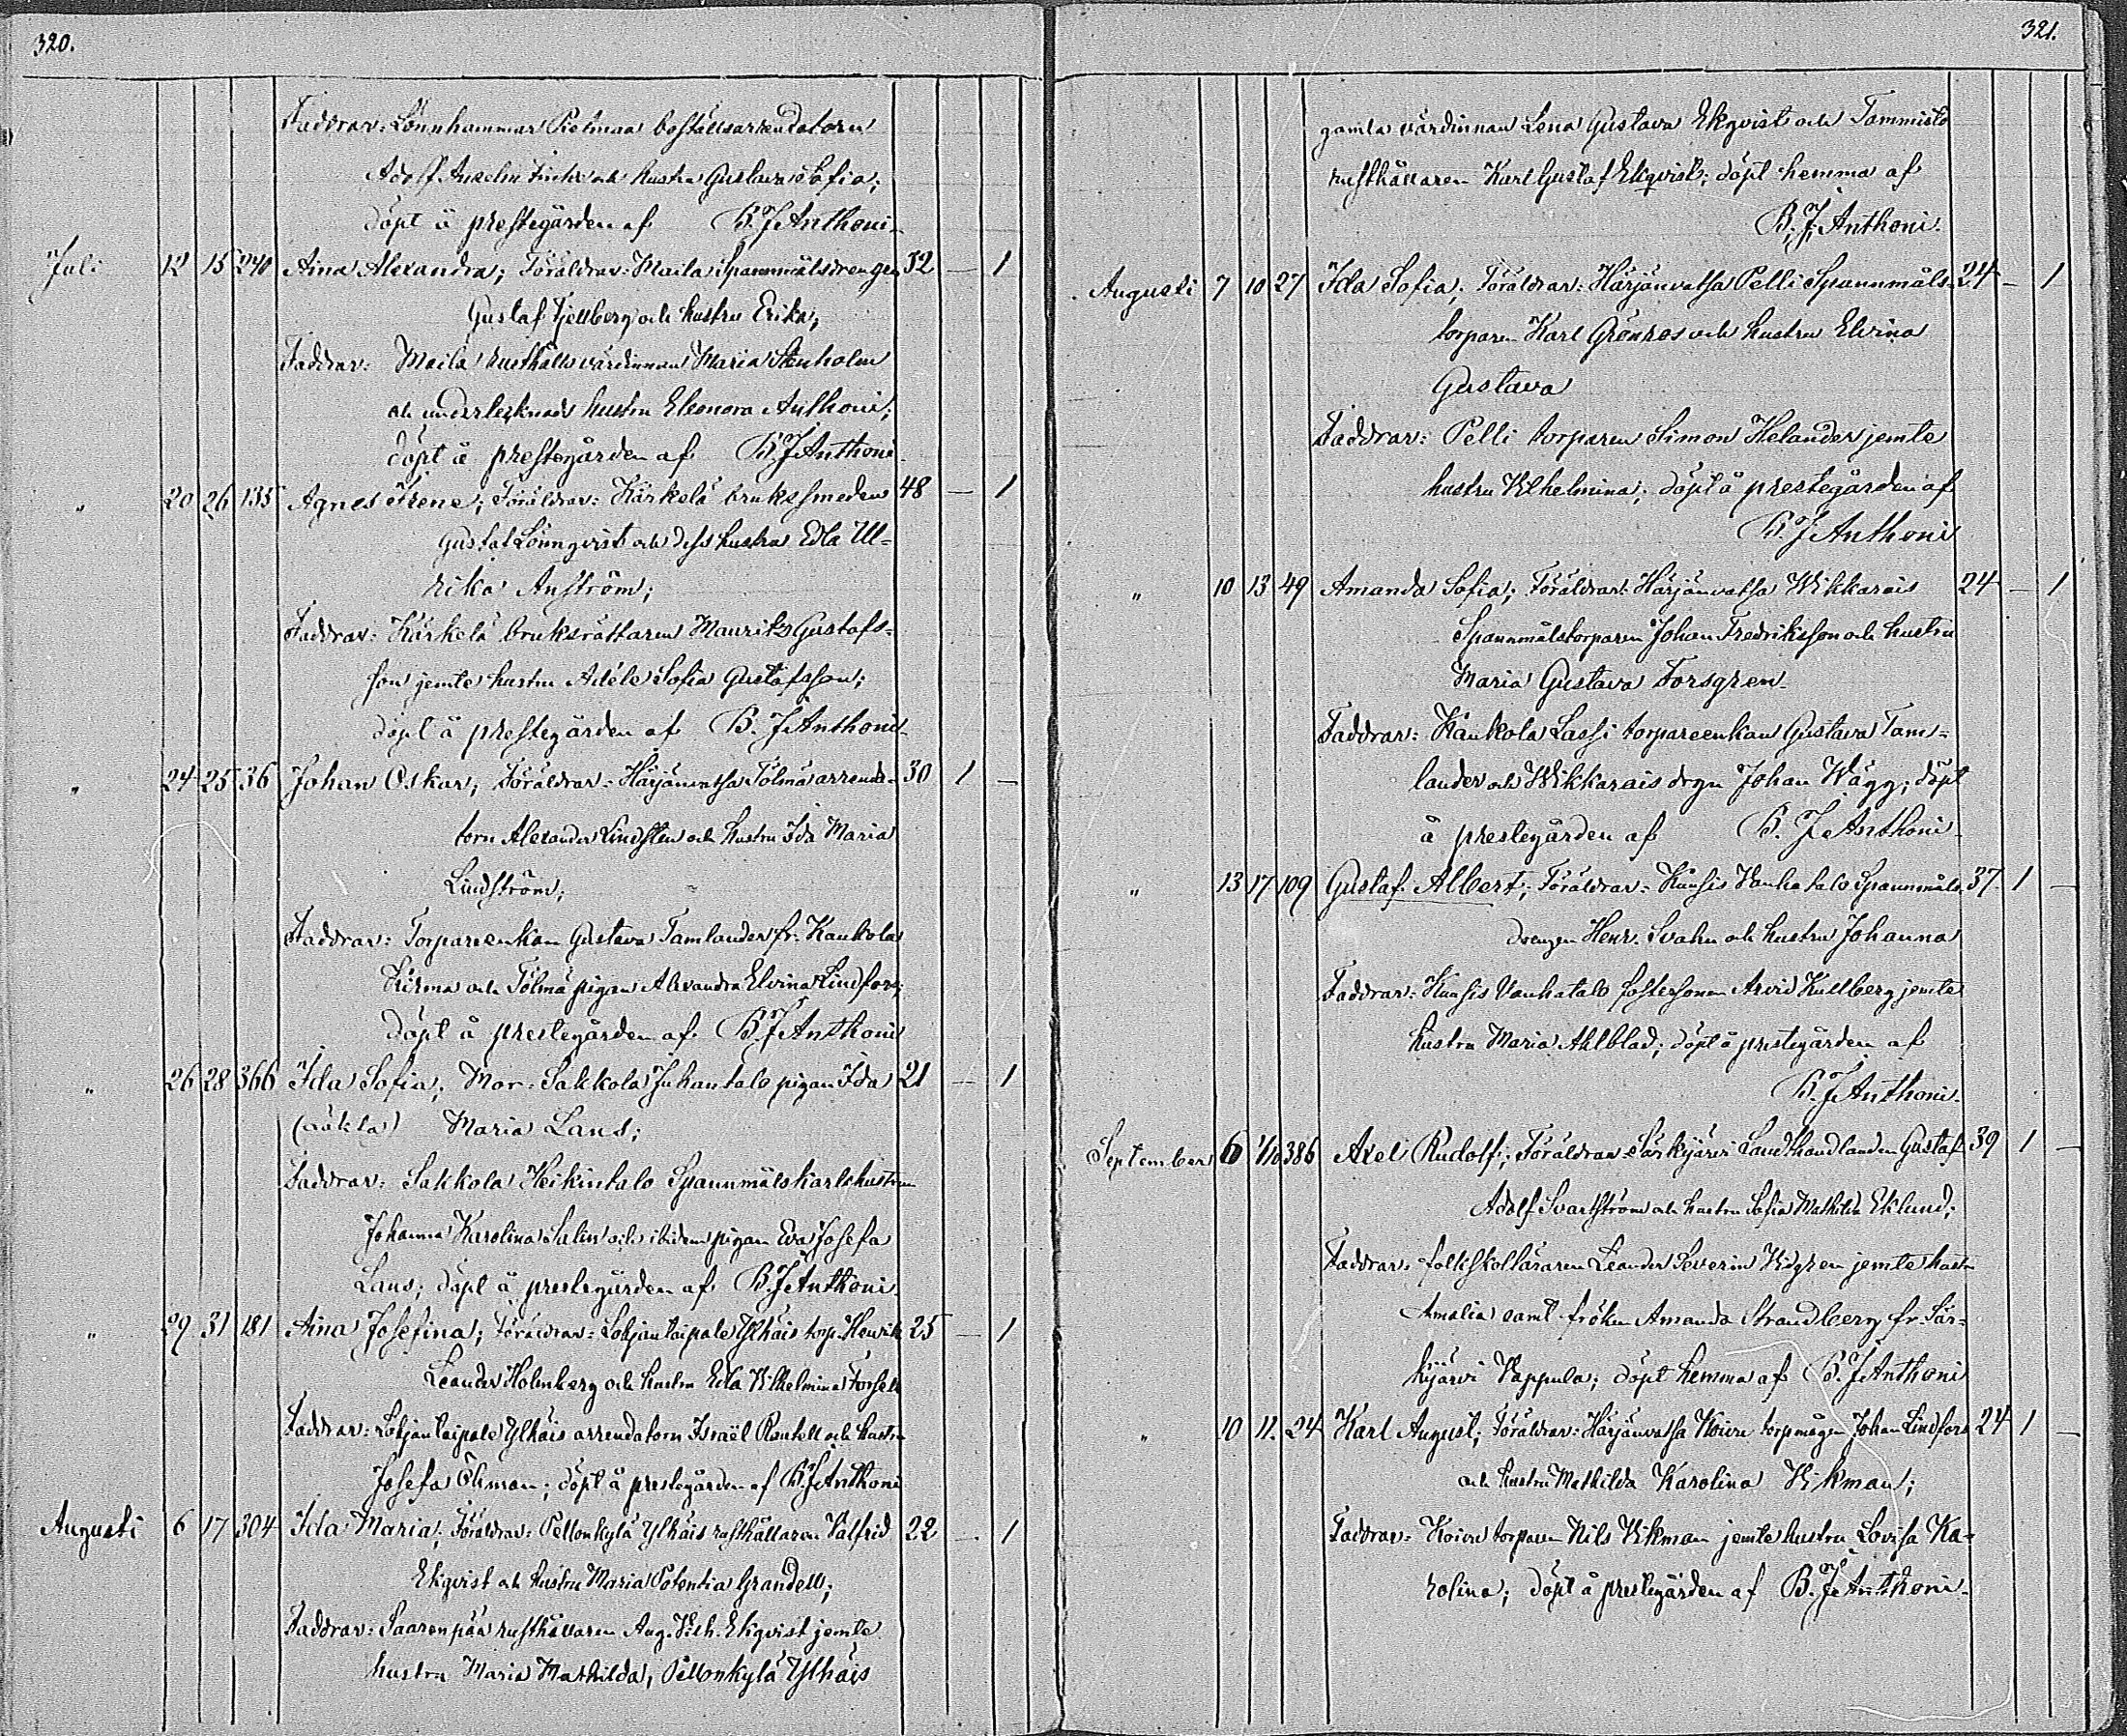 320.
Faddrar: Lönnhammar Pietmaa boställsarrendatorn
Adolf Anselm och hustru Gustava Sofia;
döpt å prestegården af B. J. Anthoni.
Juli 12 15 240 Aina Alexandra; Föräldrar: Maila Spannmålsdrengen 32 — 1
Gustaf Fjellberg och hustru Erika;
Faddrar: Maila rusthålls värdinnan Maria Stenholm
och undertecknads hustru Eleonora Anthoni;
döpt å prestegården af B. J. Anthoni.
" 20 26 135 Agnes Irene; Föräldrar: Kärkelä bruksmeden 48 — 1
Gustaf Lönnqvist och dess hustru Edla Ul-
rika Anström;
Faddrar: Kärkelä bruksrättaren Maurits Gustafs-
son jemte hustru Adéle Sofia Gustafsson;
döpt å prestegården af B. J. Anthoni.
" 24 25 36 Johan Oskar; Föräldrar: Härjänvatsa Tölmä arrenda- 30 1 —
torn Alexander Lindsten och hustru Ida Maria
Lindström;
Faddrar: Torpareenkan Gustava Tamlander fr. Kaukola
Kirma och Tölmä pigan Alexandra Elvina Lindfors;
döpt å prestegården af B. J. Anthoni
" 26 28 366 Ida Sofia; Mor: Sakkola Juhantalo pigan Ida 21 — 1
(oäkta) Maria Laus;
Faddrar: Sakkola Heikintalo Spannmålskarlshustrun
Johanna Karolina Salin och ibidem pigan Eva Josefa
Laus; döpt å prestegården af B. J. Anthoni.
" 29 31 181 Aina Josefina; Föräldrar: Lohjantaipale Ylhäis torp. Henrik 25 — 1
Leander Holmberg och hustru Edla Vilhelmina Forsell
Faddrar: Lohjantaipale Ylhäis arrendatorn Israël Rantell och hustru
Josefa Öhman; döpt å prestegården af B. J. Anthoni
Augusti 6 17 304 Ida Maria; Föräldrar: Pellonkylä Ylhäis rusthållaren Valfrid 22 — 1
Ekqvist och hustru Maria Potentia Grandell;
Faddrar: Saarenpää rusthållaren Aug. Vilh. Ekqvist jemte
hustru Maria Mathilda, Pellonkylä Ylhäis
321.
gamla värdinnan Lena Gustava Ekqvist och Tammisto
rusthållaren Karl Gustaf Ekqvist; döpt hemma af
B. J. Anthoni.
Augusti 7 10 27 Ida Sofia; Föräldrar: Härjänvatsa Pelli Spannmåls- 24 — 1
torparen Karl Grönros och hustru Elvina
Gustava
Faddrar: Pelli torparen Simon Helander jemte
hustru Vilhelmina; döpt å prestegården af
B. J. Anthoni
" 10 13 49 Amanda Sofia; Föräldrar: Härjänvatsa Wikkarais 24 — 1
Spannmålstorparen Johan Fredriksson och hustru
Maria Gustava Forsgren.
Faddrar: Kaukola Lassi torpareenkan Gustava Tam-
lander och Wikkarais drgn Johan Wägg; döpt
å prestegården af B. J. Anthoni.
" 13 17 109 Gustaf Albert; Föräldrar: Kuusis Vanhatalo Spannmåls- 37. 1 —
drengen Henr. Svahn och hustru Johanna
Faddrar: Kuusis Vanhatalo fostersonen Arvid Kullberg jemte
hustru Maria Ahlblad; döpt å prestegården af
B. J. Anthoni.
September 6 1/10 386 Axel Rudolf; Föräldrar: Särkjärvi Landthandlanden Gustaf 39 1 —
Adolf Svartström och hustru Sofia Mathilda Eklund;
Faddrar: folkskolläraren Leander Severin Vidgren jemte hustru
Amalia samt fröken Amanda Strandberg fr. Sär-
kjärvi Vappula; döpt hemma af B. J. Anthoni
" 10 11. 24 Karl August; Föräldrar: Härjänvatsa Koivu torpmågen Johan Lindfors 24 1 —
och hustru Mathilda Karolina Vikman;
Faddrar: Koivu torparen Nils Vikman jemte hustru Lovisa Ka-
rolina; döpt å prestegården af B. J. Anthoni.